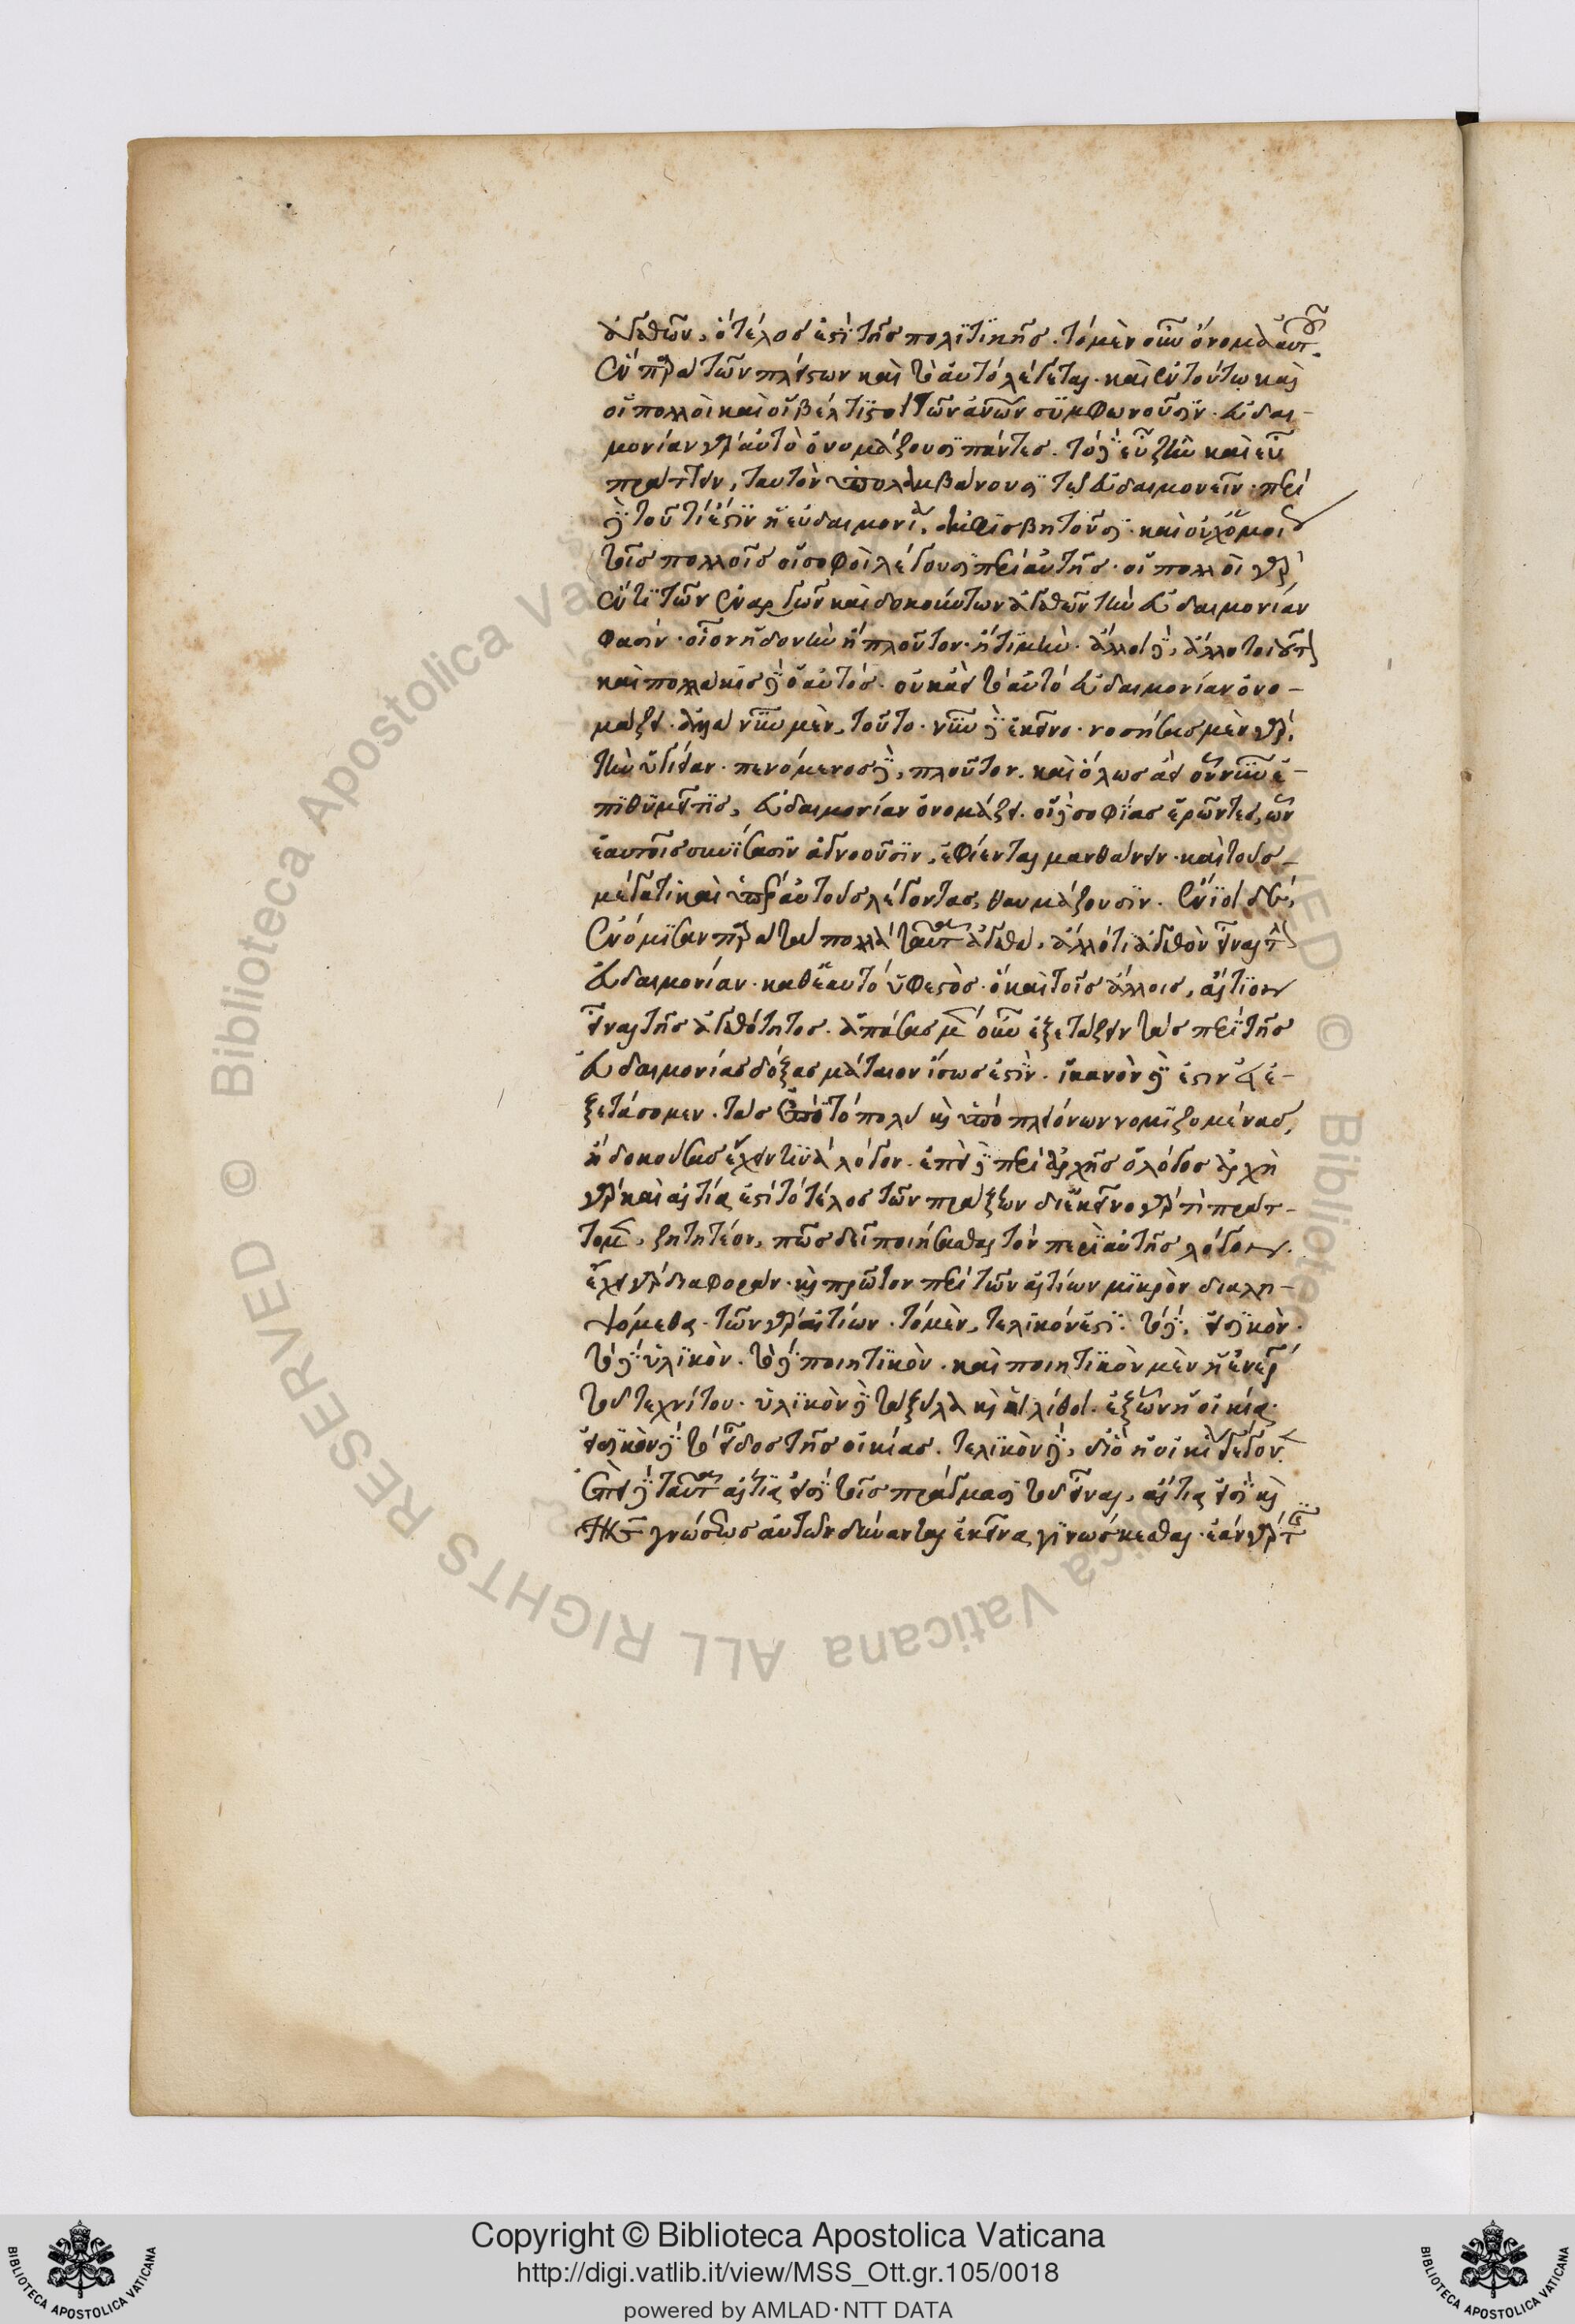 ἀγαθῶν, ὃ τέλος ἐστὶ τῆς πολιτικῆς. τὸ μὲν οὖν ὄνομα αὐτοῦ
ἐν παρὰ τῶν πλείστων καὶ τὸ αὐτὸ λέγεται. καὶ ἐν τούτῳ καὶ
οἱ πολλοὶ καὶ οἱ βέλτιστοι τῶν ἀνθρώπων συμφωνοῦσιν. εὐδαι-
μονίαν γὰρ αὐτὸ ὀνομάζουσι πάντες. τὸ δὲ εὖ ζῆν καὶ εὖ
πράττειν, ταυτὸν ὑπολαμβάνουσι τῷ εὐδαιμονεῖν. περὶ
δὲ τοῦ τί ἐστιν ἡ εὐδαιμονία, ἀμφισβητοῦσι. καὶ οὐχ ὅμοια
τοῖς πολλοῖς οἱ σοφοὶ λέγουσι περὶ αὐτῆς. οἱ πολλοὶ γὰρ
ἕν τι τῶν ἐναργῶν καὶ δοκούντων ἀγαθῶν τὴν εὐδαιμονίαν
φασίν. οἷον ἡδονὴν ἢ πλοῦτον. ἢ τιμήν. ἄλλοι δὲ, ἄλλο τοιοῦτον
καὶ πολλάκις δὲ ὁ αὐτός. οὐκ ἀεὶ τὸ αὐτὸ εὐδαιμονίαν ὀνο-
μάζει. ἀλλὰ νῦν μὲν, τοῦτο. νῦν δὲ ἐκεῖνο. νοσήσας μὲν γὰρ,
τὴν ὑγίειαν. πενόμενος δὲ, πλοῦτον. καὶ ὅλως ἀεὶ οὗ νῦν ἐ-
πιθυμεῖ τις, εὐδαιμονίαν ὀνομάζει. οἱ δὲ σοφίας ἐρῶντες, ὧν
ἑαυτοῖς συνίσασιν ἀγνοοῦσιν, ἐφίενται μανθάνειν. καὶ τοὺς
μέγα τι καὶ ὑπὲρ αὐτοὺς λέγοντας, θαυμάζουσιν. ἔνιοι δὲ,
ἐνόμισαν παρὰ τὰ πολλὰ ταῦτα ἀγαθὰ, ἄλλό τι ἀγαθὸν εἶναι τὴν
εὐδαιμονίαν. καθ' ἑαυτὸ ὑφεστὸς. ὃ καὶ τοῖς ἄλλοις, αἴτιον
εἶναι τῆς ἀγαθότητος. ἁπάσας μὲν οὖν ἐξετάζειν τὰς περὶ τῆς
εὐδαιμονίας δόξας μάταιον ἴσως ἐστίν. ἱκανὸν δὲ ἐστιν εἰ ἐ-
ξετάσομεν. τὰς ἐπὶ τὸ πολὺ καὶ ὑπὸ πλειόνων νομιζομένας,
ἢ δοκούσας ἔχειν τινὰ λόγον. ἐπεὶ δὲ περὶ ἀρχῆς ὁ λόγος ἀρχὴ
γὰρ καὶ αἰτία ἐστὶ τὸ τέλος τῶν πράξεων δι' ἐκεῖνο γὰρ τι πράτ-
τομεν, ζητητέον, πῶς δεῖ ποιήσασθαι τὸν περὶ αὐτῆς λόγον.
ἔχει γὰρ διαφοράν. καὶ πρῶτον περὶ τῶν αἰτίων μικρὸν διαλη-
ψόμεθα. τῶν γὰρ αἰτίων. τὸ μὲν, τελικόν ἐστι. τὸ δὲ, εἰδικὸν.
τὸ δὲ ὑλικὸν. τὸ δὲ ποιητικὸν. καὶ ποιητικὸν μὲν ἡ ἐνέργεια
τοῦ τεχνίτου. ὑλικὸν δὲ τὰ ξύλα καὶ οἱ λίθοι. ἐξ ὧν ἡ οἰκία.
εἰδικὸν δὲ τὸ εἶδος τῆς οἰκίας. τελικὸν δὲ, δι' ὃ ἡ οἰκία γέγονεν.
ἐπεὶ δὲ ταῦτα αἰτία εἰσὶ τοῖς πράγμασι τοῦ εἶναι, αἴτια εἰσὶ καὶ
γνώσεως αὐτῶν δύναται ἐκεῖνα γινώσκεσθαι. ἐὰν γὰρ